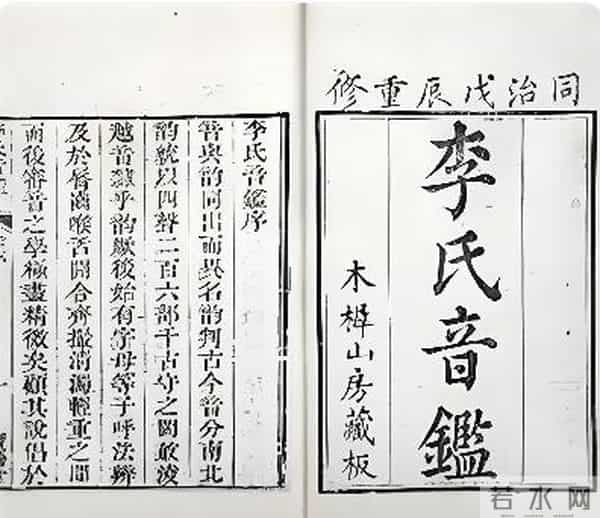 同治戊辰重修
李氏音鑑
木樨山房藏板
李氏音鑑序
音與韵同出而異名韵判古今音分南北
韵統以四聲二百六部千古守之罔敢凌
越音隸乎韵厥後始有字母等子呼法辨
及於唇齒喉舌開合齊撮清濁輕重之間
而後審音之學極盡精微矣顧其說倡於
若水网